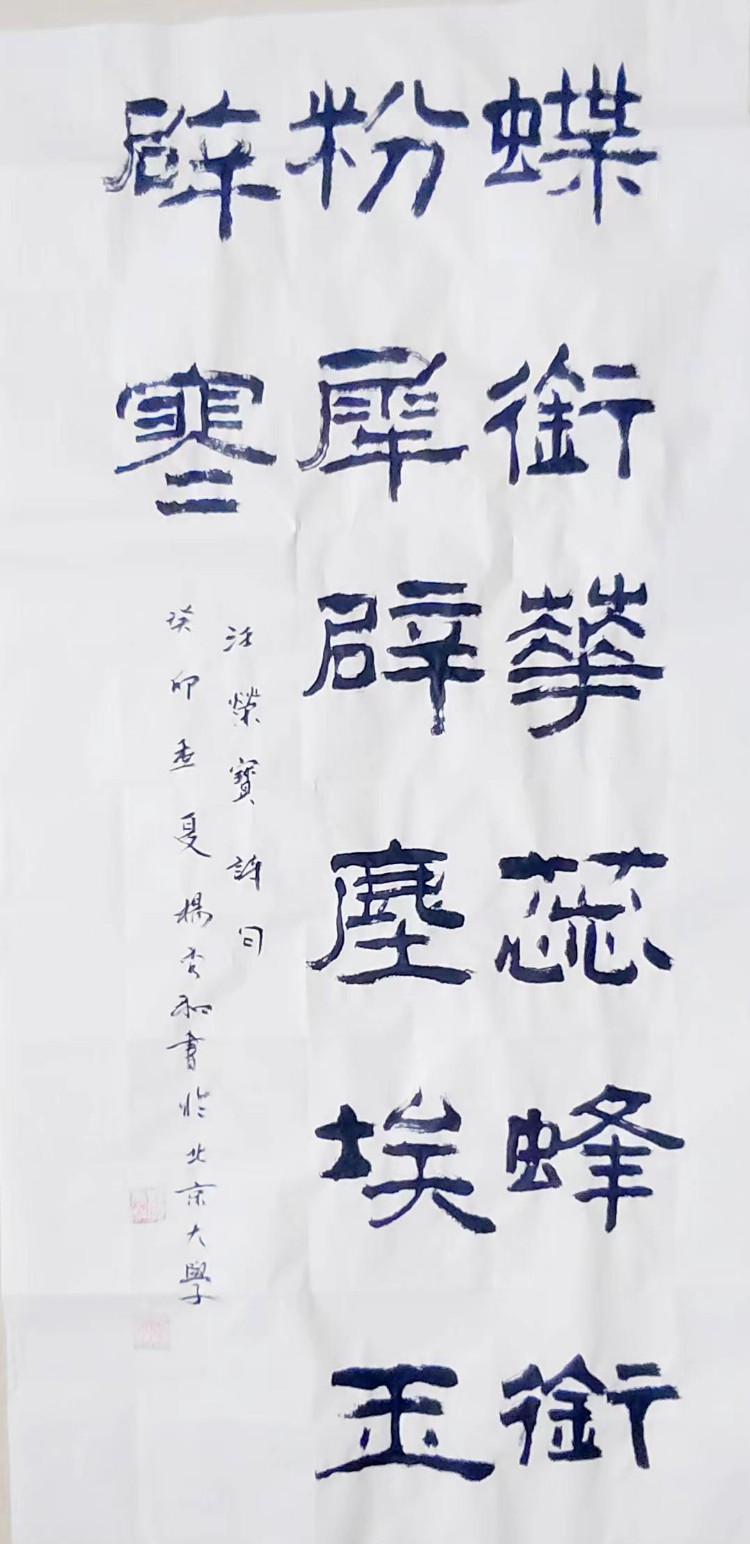 蝶銜華蕊蜂銜
粉犀辟塵埃玉
辟寒
汪榮寶詩句
癸卯孟夏楊書和書於北京大學